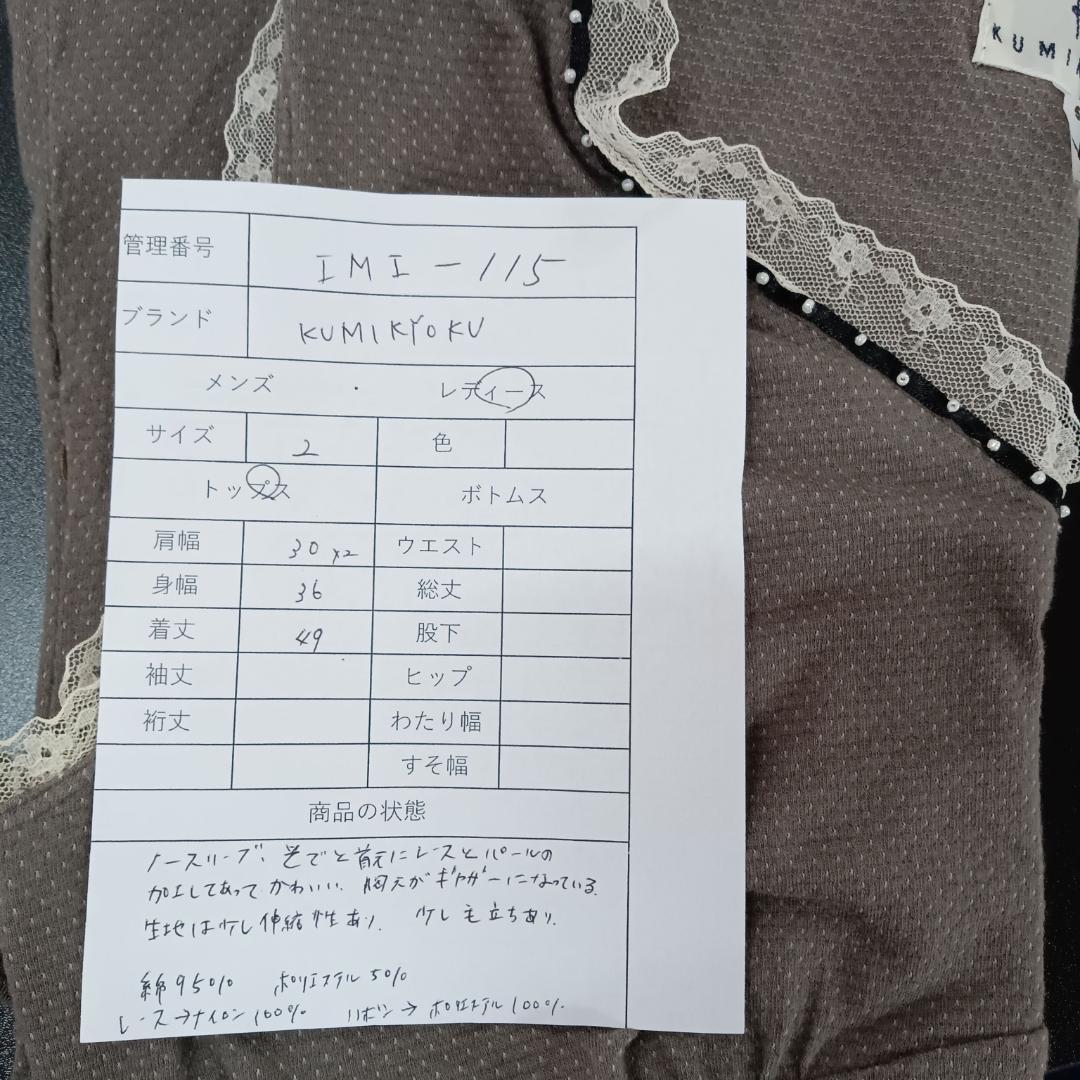 KUMI
管理番号 IMI-115
ブランド KUMIKYOKU
メンズ ・ レディース
サイズ 2 色
トップス ボトムス
肩幅 30 x2 ウエスト
身幅 36 総丈
着丈 49 股下
袖丈 ヒップ
裄丈 わたり幅
すそ幅
商品の状態
ノースリーブ、そでと首元にレースとパールの
加工してあって かわいい、胸元がギャザーになっている。
生地は少し伸縮性あり、 少し毛立ちあり、
綿95% ポリエステル5%
レース→ナイロン100% リボン→ポリエステル100%